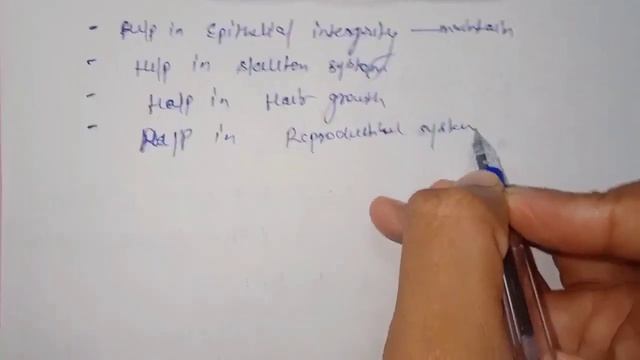 - Help in Epithelial intergrity — maintain
- Help in skeleton system
- Help in Hair growth
- Help in Reproductival system